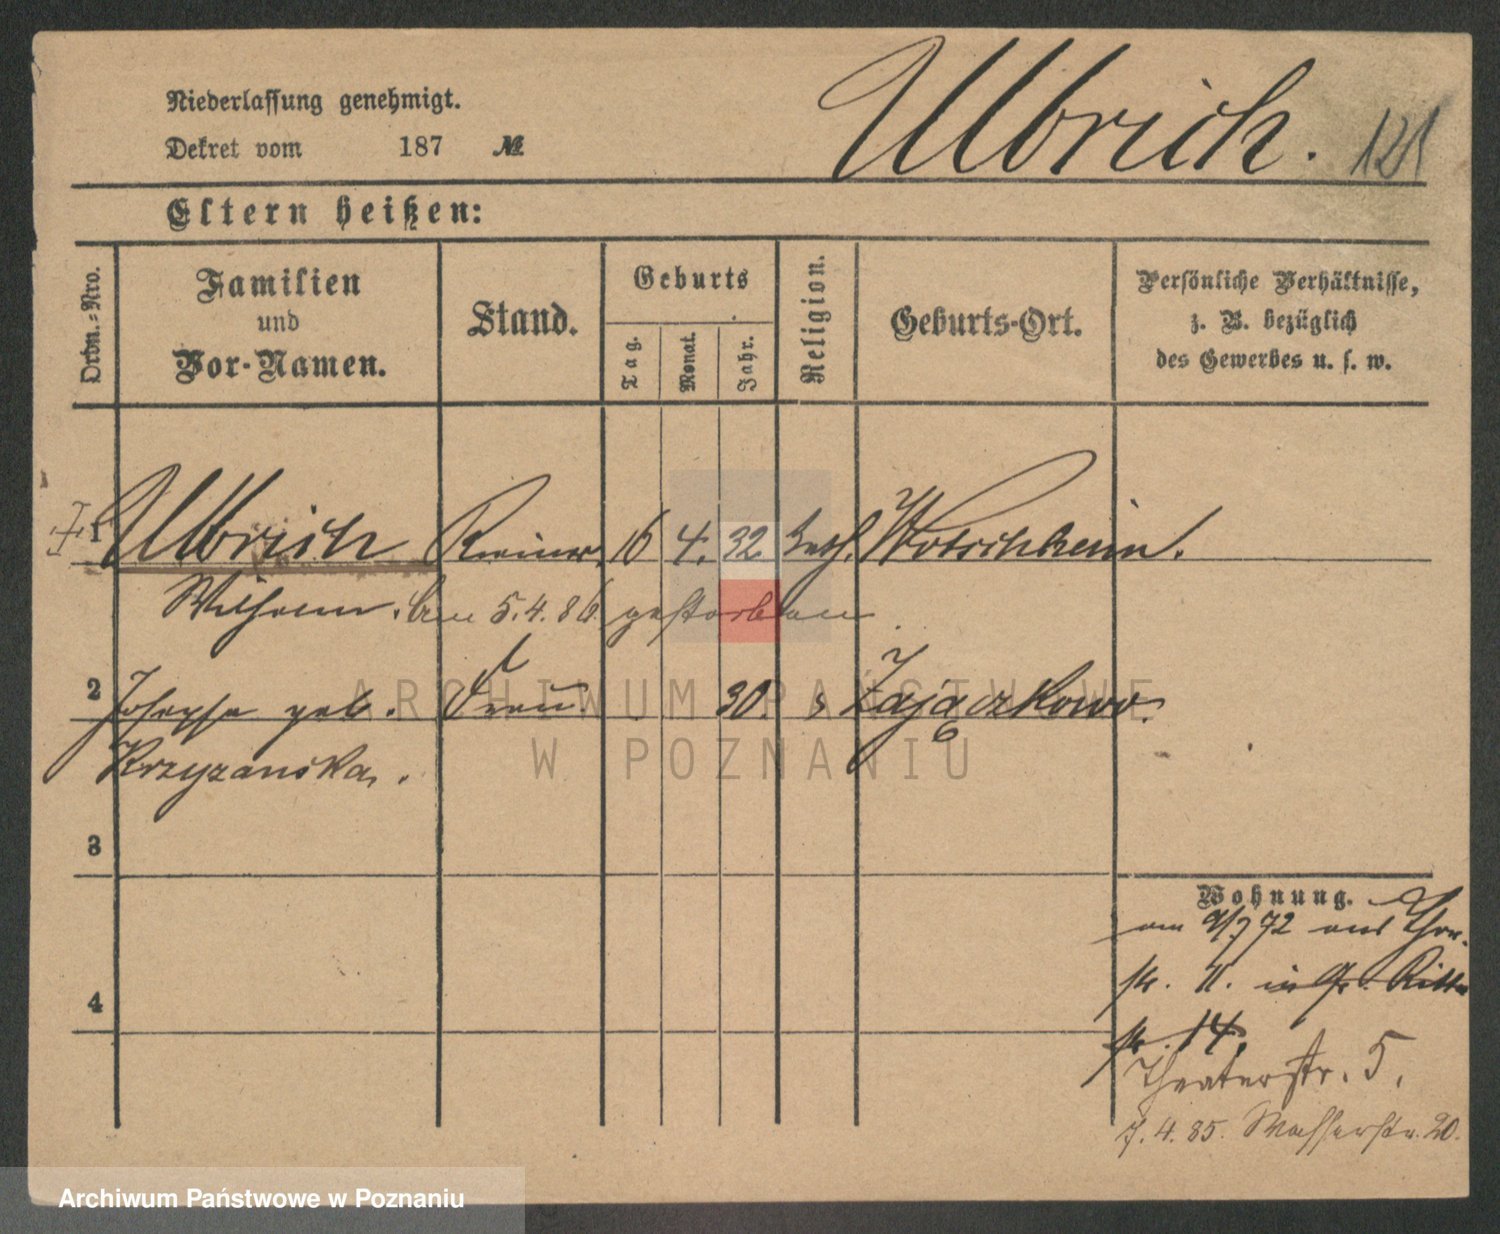 Niederlassung genehmigt.
Dekret vom 187 №
Ulbrich. 121
Eltern heißen:
Ordn.-Nro.
Familien
und
Vor-Namen.
Stand.
Geburts
Tag.
Monat.
Jahr.
Religion.
Geburts-Ort.
Persönliche Verhältnisse,
z. B. bezüglich
des Gewerbes u. s. w.
1 Ulbrich 16 4. 32. kath.
Wilhelm. den 5.4.86. gestorben.
2 Josepha geb. Frau. 30. Zajączkowo.
Krzyzanska.
3
4
Wohnung.
am 9/7 72 aus Thor-
str. 11. in Gr. Ritter
str. 14.
Theaterstr. 5.
7.4.85. Wasserstr. 20.
ARCHIWUM PAŃSTWOWE
W POZNANIU
Archiwum Państwowe w Poznaniu